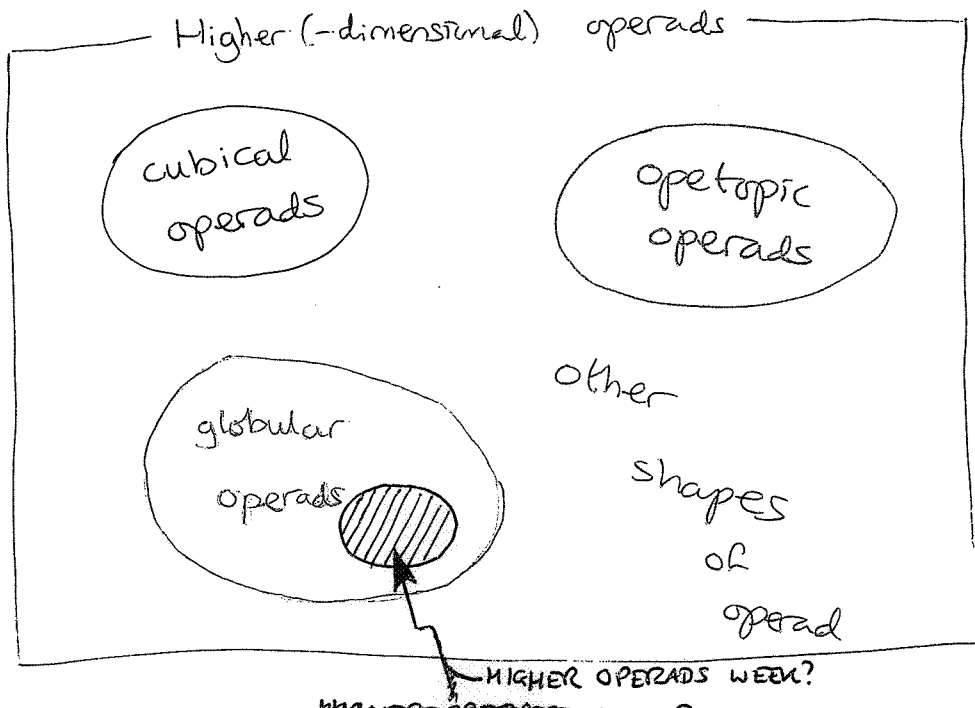 Higher (-dimensional) operads
cubical
operads
opetopic
operads
other
globular
operads
shapes
of
operad
HIGHER OPERADS WEEK?